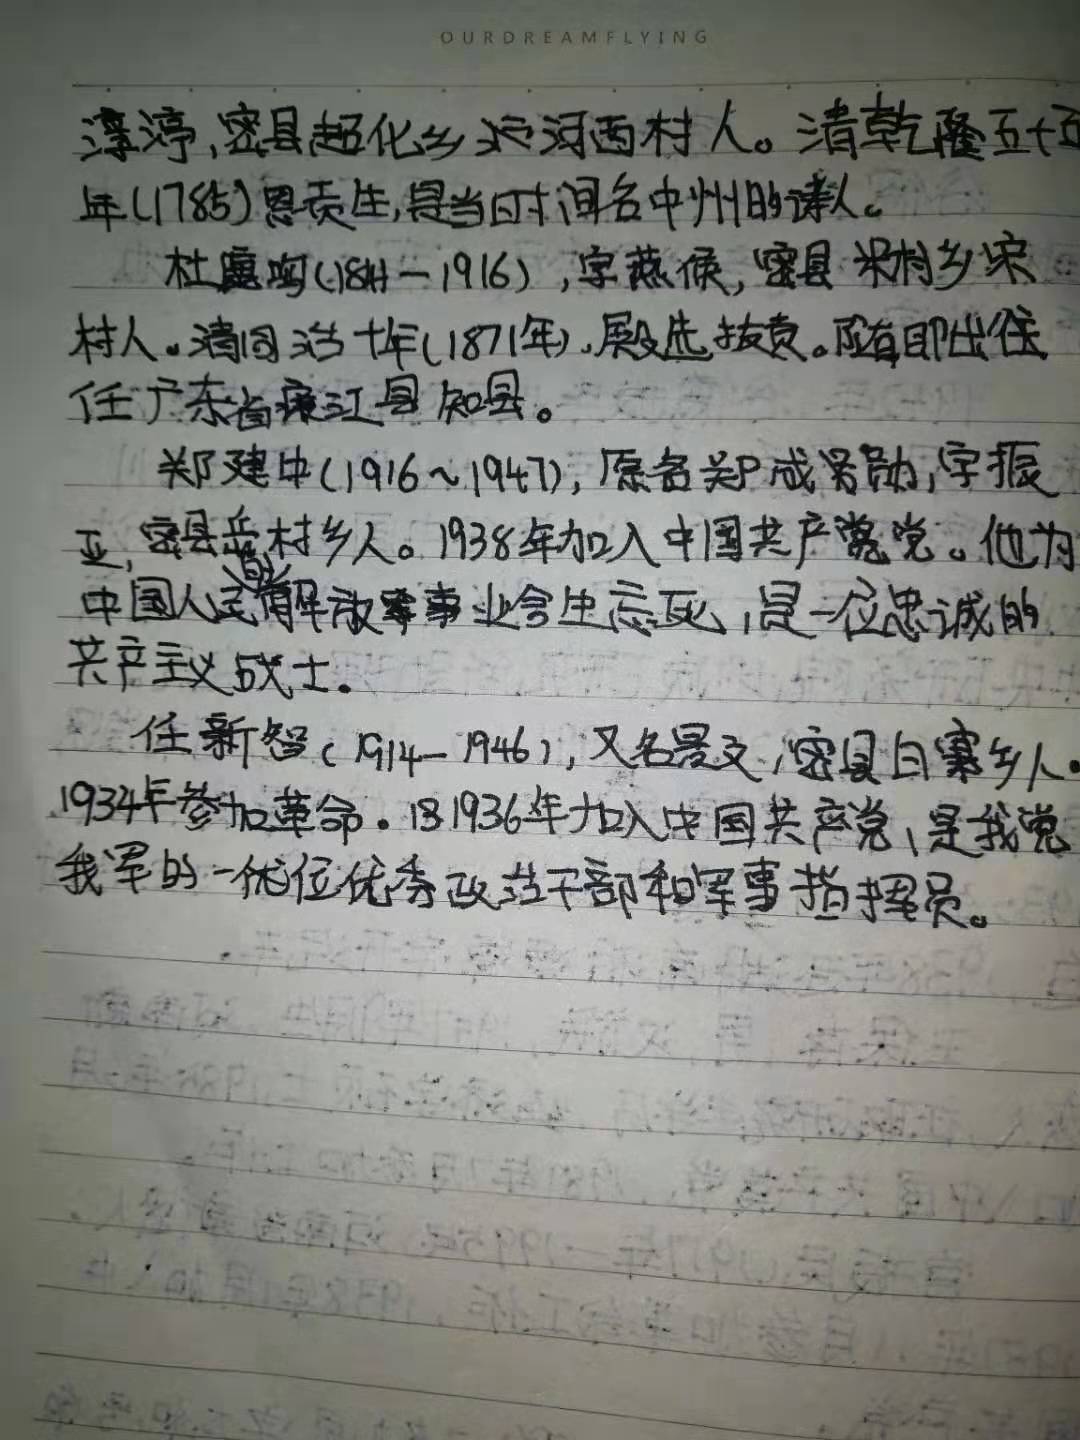 OURDREAMFLYING
淳渟,密县超化乡河西村人。清乾隆五十五
年(1785)恩贡生,是当时间名中州的诗人。
杜鸣(1841-1916),字燕侯,密县米村乡宋
村人。清同治十年(1871年),殿选拔贡。随即出任
任广东省廉江县知县。
郑建中(1916~1947),原名郑成勋,字振
亚,密县岳村乡人。1938年加入中国共产党党。他为
中国人民的解放军事业舍生忘死,是一位忠诚的
共产主义战士.
任新智(1914-1946),又名景文,密县白寨乡人.
1934年参加革命.1936年加入中国共产党,是我党
我军的一位优秀政治干部和军事指挥员。